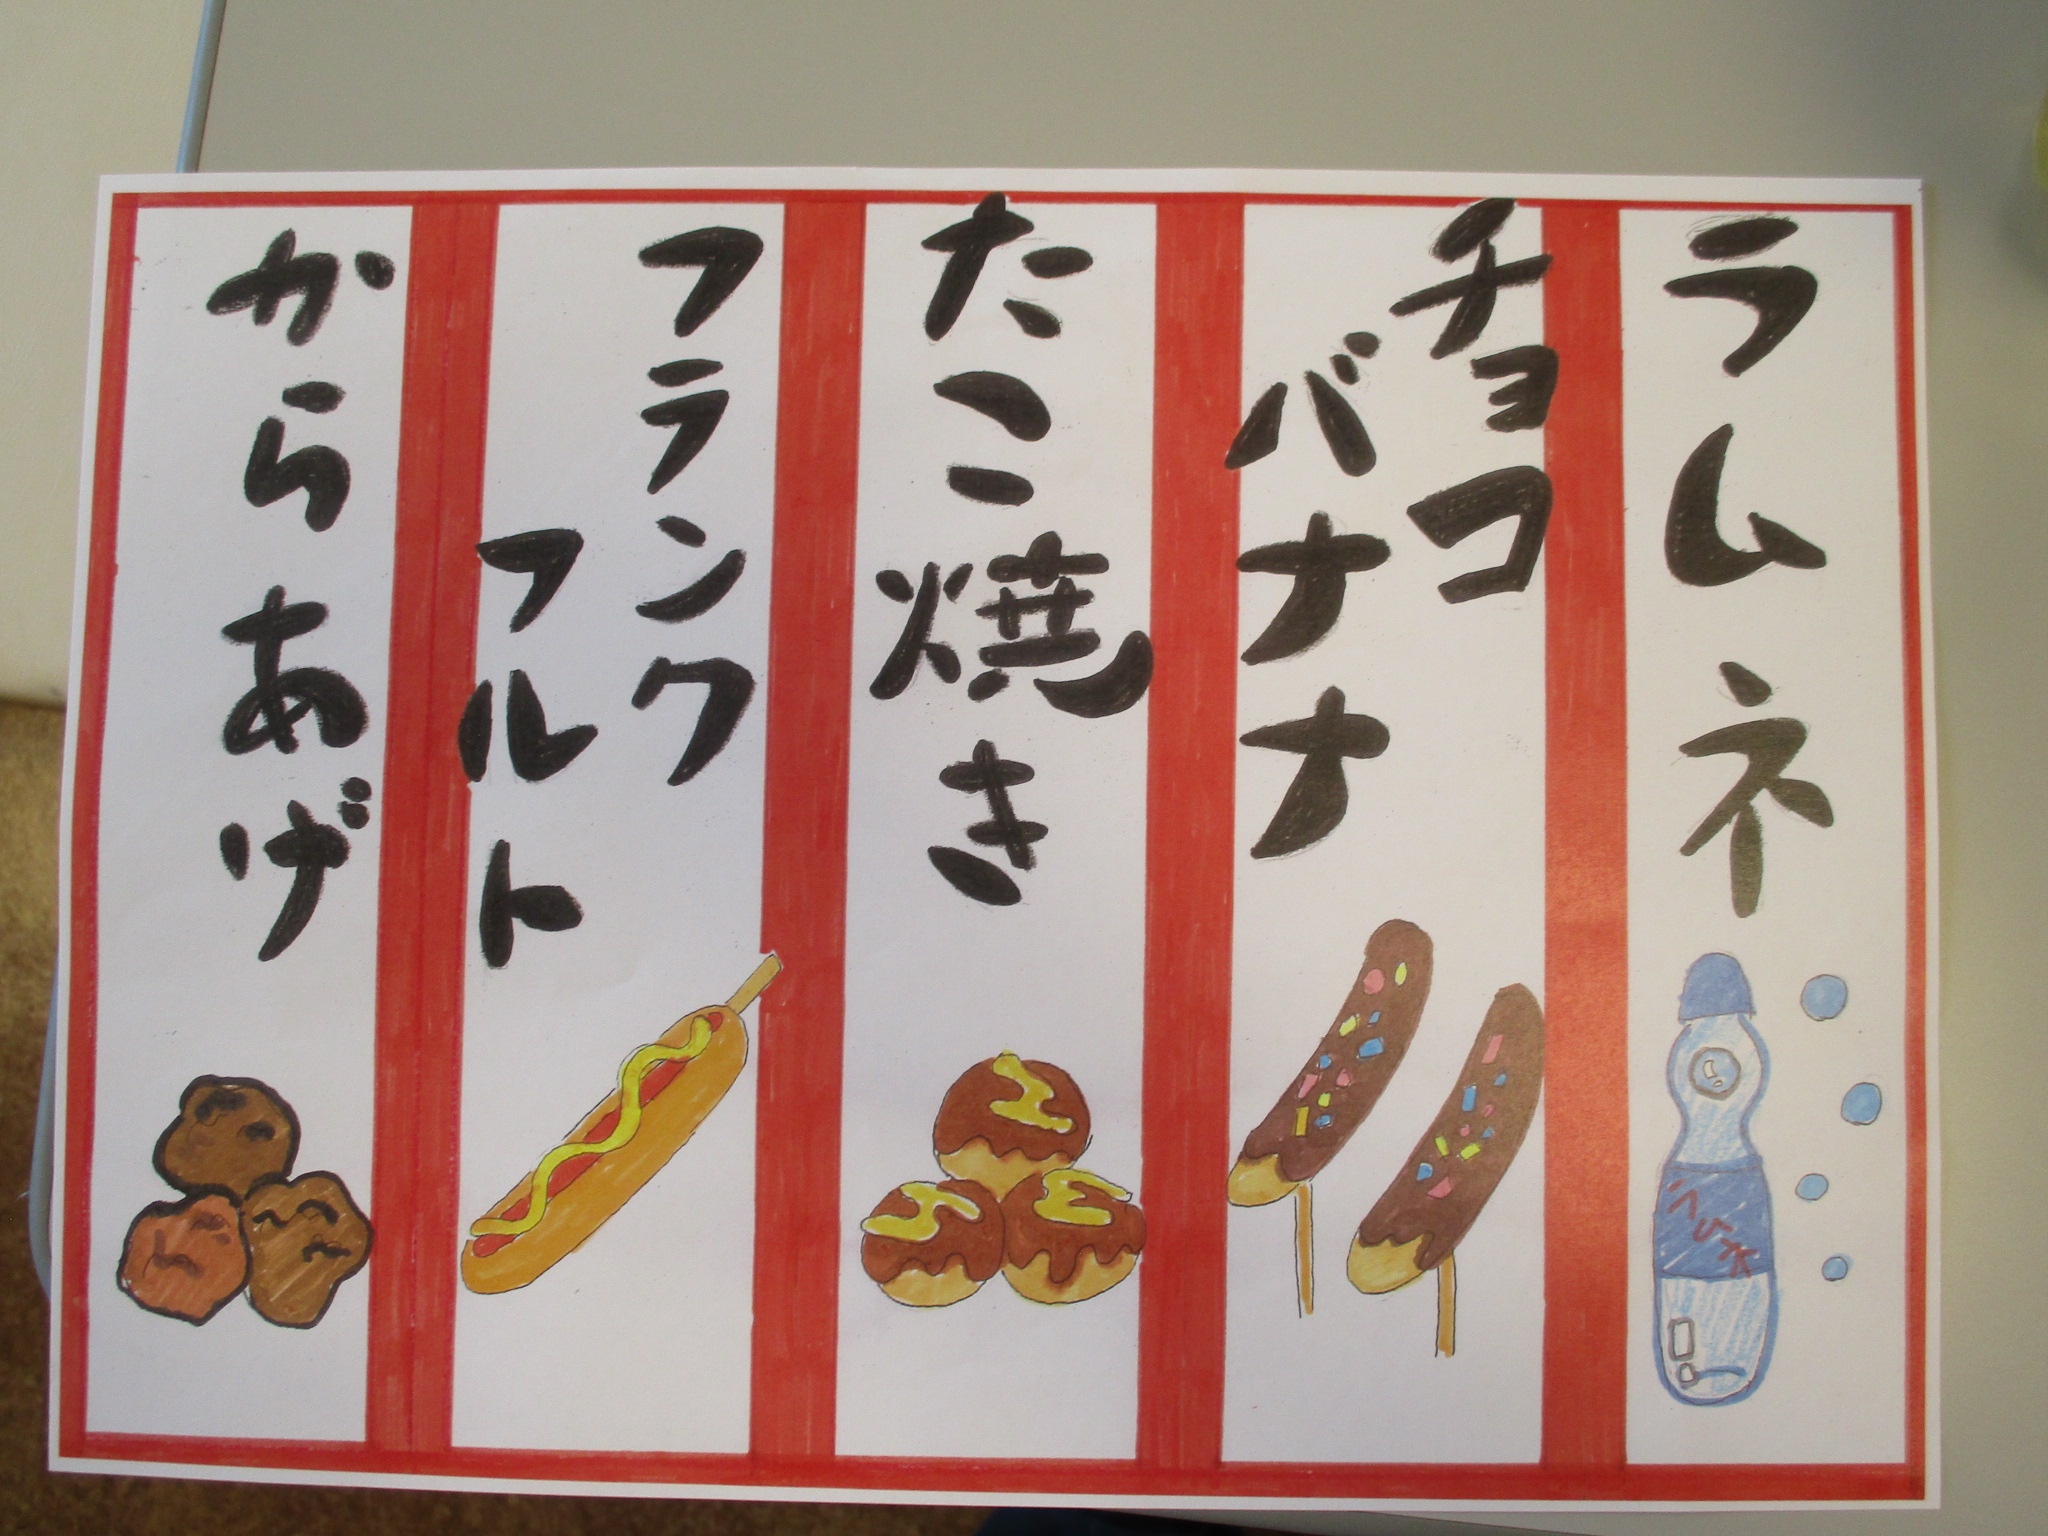 ラムネ
チョコ
バナナ
たこ焼き
フランク
フルト
からあげ